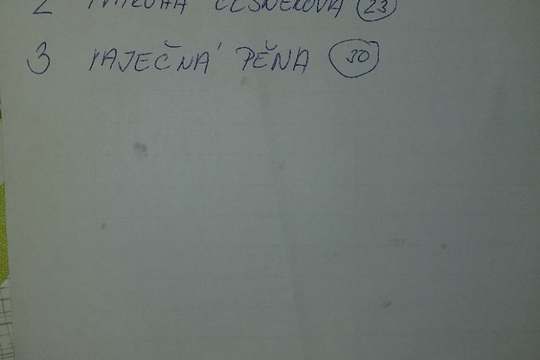 2 ČESNEKOVÁ 23
3 VAJEČNÁ PĚNA 30